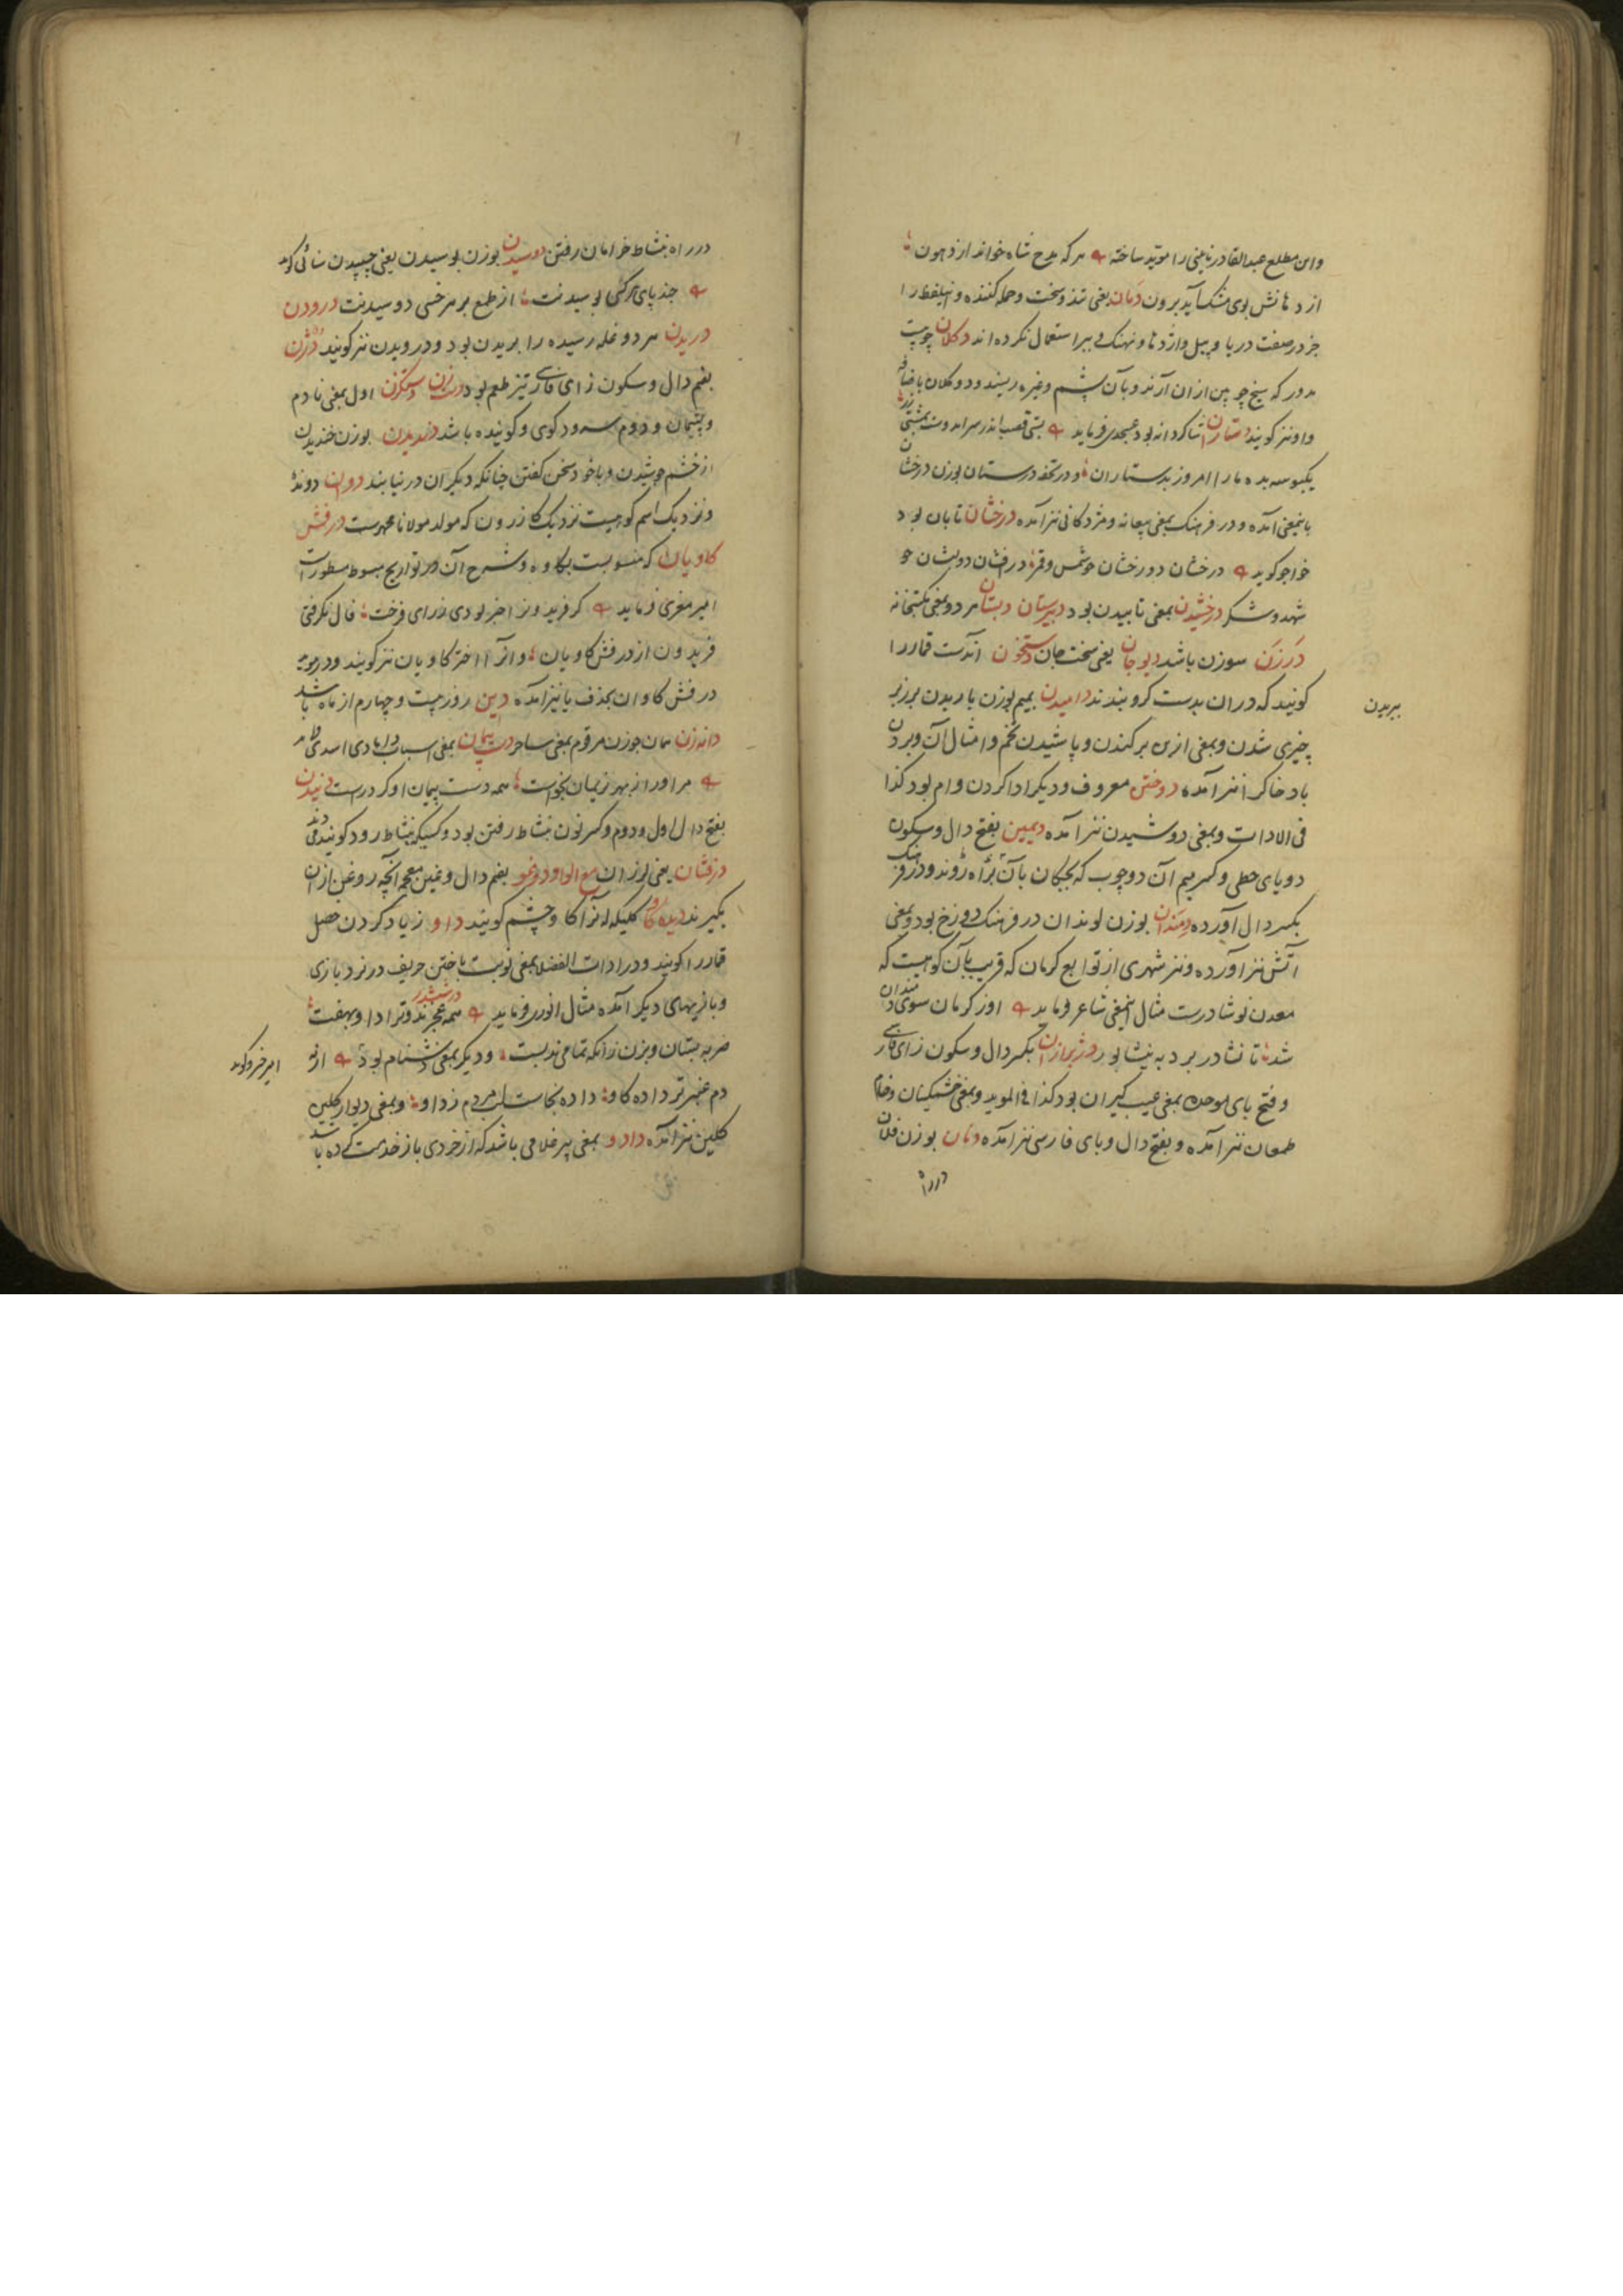 واین مطلع عبدالقادر نایینی را موید ساخته هر که مدح شاه خواند از دهون
از دهانش بوی مشک آید برون دمان بمعنی تند و سخت و حمله کننده و این لفظ را
جز در صفت دریا و پیل و اژدها و نهنک و ببر استعمال نکرده اند دکلان چوبیست
مدور که سیخ چوبین ازان آرند و بآن پشم و غیره ریسند و دوکلان باضافه
واو نیز کویند دستاران شاکردانه بود عسجدی فرماید
یکبوسه بده مارا امروز بدستاران و در تحفه درستان بوزن درخشان
باینمعنی آمده و در فرهنک بمعنی بیعانه و مژدکانی نیز آمده درخشان تابان بود
خواجو کوید درخشان دو رخشان چو شمس و قمر در افشان دو لبشان چو
شهد و شکر درخشیدن بمعنی تابیدن بود دبیرستان دبستان هر دو بمعنی مکتبخانه
درزن سوزن باشد دیوجان یعنی سخت جان دستخون آنست قمار را
کویند که دران بدست کرو بندند دامیدن بمیم بوزن باریدن بر زبر
چیزی شدن و بمعنی از بن برکندن و پاشیدن تخم و امثال آن و بردن
باد خاک را نیز آمده دوختن معروف و دیکر ادا کردن وام بود کذا
فی الادات و بمعنی دوشیدن نیز آمده دیمین بفتح دال و سکون
دو یای حطی و کسر میم آن دو چوب که بچکان بآن براه روند و در فرهنک
بکسر دال آورده دمندان بوزن لوندان در فرهنک دوزخ بود و بمعنی
آتش نیز آورده و نیز شهری از توابع کرمان که قریب بآن کوهیست که
معدن نوشادرست مثال اینمعنی شاعر فرماید او ز کرمان سوی دمندان
شد تا نشادر برد به نیشابور دژبرازان بکسر دال و سکون زای فارسی
و فتح بای موحده بمعنی عیب کیران بود کذا فی الموید و بمعنی خشمکینان و
طمعان نیز آمده و بفتح دال و بای فارسی نیز آمده دنان بوزن فلان
در راه
ببریدن
در راه بنشاط خرامان رفتن دوسیدن بوزن بوسیدن یعنی چسپیدن سنائی کوید
چند پای هر کسی بوسیدنت از طمع بر هر خسی دوسیدنت درودن
دریدن هر دو غله رسیده را بریدن بود و درویدن نیز کویند دژن
بضم دال و سکون زای فارسی تیز طعم بود اول بمعنی نادم
و پشیمان و دوم سرود کوی و کوینده باشد دندیدن بوزن خندیدن
از خشم جوشیدن و با خود سخن کفتن چنانکه دیکران در نیابند دوان دونده
و نزدیک اسم کوهیست نزدیک کازرون که مولد مولانا درفش
کاویان که منسوبست بکاوه و شرح آن در تواریخ مبسوط مسطورست
امیر معزی فرماید کر فریدونرا خبر بودی ز رای فرخت فال نکرفتی
فریدون از درفش کاویان و آنرا اختر کاویان نیز کویند و
درفش کاوان بحذف یا نیز آمده دین روز بیست و چهارم از ماه باشد
دانه زن همان جوزن مرقوم بمعنی ساحر دست پیمان بمعنی اسباب دامادی اسدی
مر او را ز بهر نریمان بخواست همه دست پیمان او کرد راست دنیدن
بفتح دال اول و دوم و کسر نون بنشاط رفتن بود و کسیکه بنشاط رود کویند
درفشان یعنی لرزان مع الواو دوغو بضم دال و غین معجمه آنچه روغن ازان
بکیرند دیده کاو کلیکه آنرا کاو چشم کویند داو زیاد کردن خصل
قمار را کویند و در ادات الفضلا بمعنی نوبت باختن حریف در نرد بازی
و بازیهای دیکر آمده مثال انوری فرماید همه در ششدر عجزند و ترا داو بهفت
ضربه بستان و بزن زانکه تمامی ندبست و دیکر بمعنی دشنام بود از
دم عنبر تر داده کاو داده نجاست لب مردم ز داو و بمعنی دیوار کلین
کلین نیز آمده دادو بمعنی پیر غلامی باشد که از خردی باز خدمت کرده باشد
امیر خسرو کوید